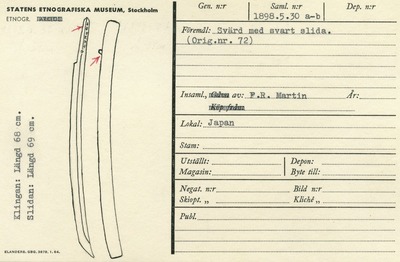 STATENS ETNOGRAFISKA MUSEUM, Stockholm
ETNOGR.
Klingan: Längd 68 cm.
Slidan: Längd 69 cm.
ELANDERS, GBG. 3878. 1. 54.
Gen. n:r
Saml. n:r
Dep. n:r
1898.5.30 a-b
Föremål: Svärd med svart slida.
(Orig.nr. 72)
Insaml., av: F.R. Martin År:
Köp från
Lokal: Japan
Stam:
Utställt: Depon:
Magasin: Byte till:
Negat. n:r Bild n:r
Skiopt. „ Kliché „
Publ.